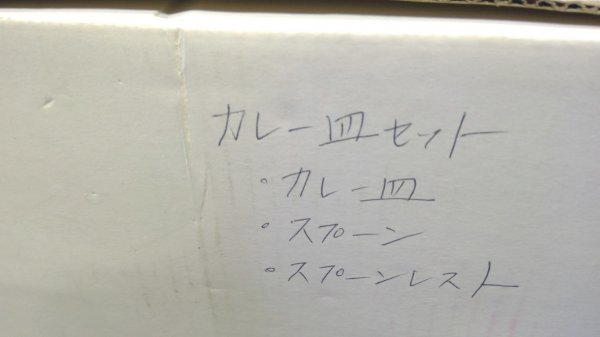 カレー皿セット
・カレー皿
・スプーン
・スプーンレスト